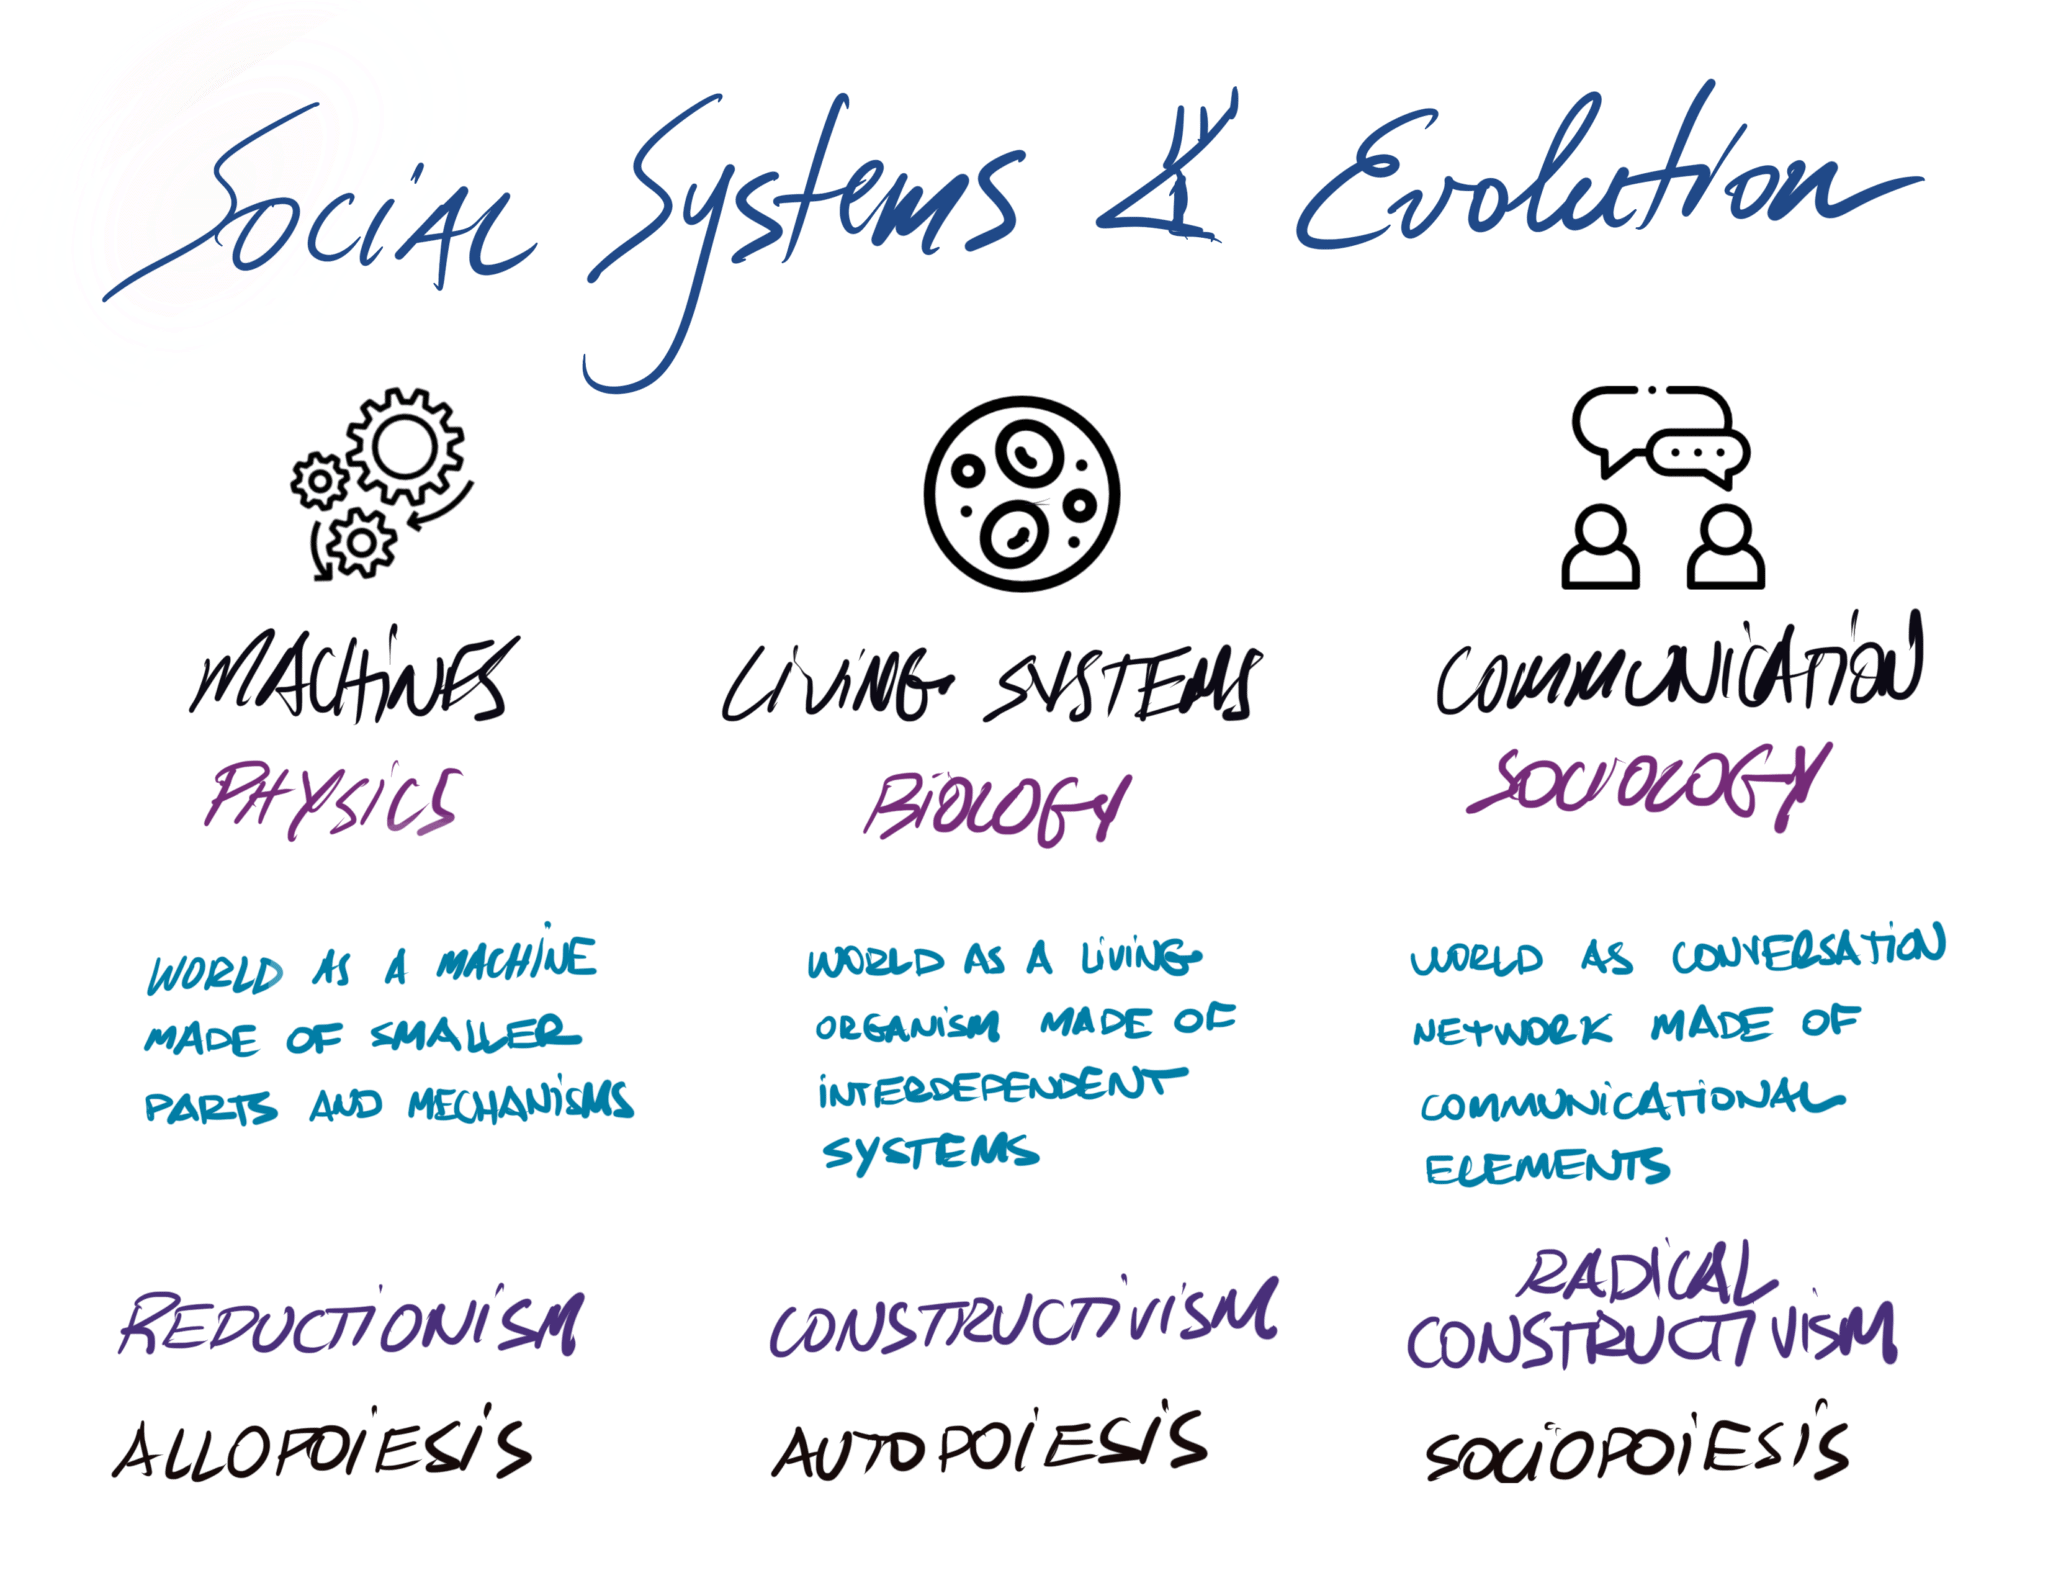 Social Systems & Evolution
MACHINES
PHYSICS
WORLD AS A MACHINE
MADE OF SMALLER
PARTS AND MECHANISMS
REDUCTIONISM
ALLOPOIESIS
LIVING SYSTEMS
BIOLOGY
WORLD AS A LIVING
ORGANISM MADE OF
INTERDEPENDENT
SYSTEMS
CONSTRUCTIVISM
AUTOPOIESIS
COMMUNICATION
SOCIOLOGY
WORLD AS CONVERSATION
NETWORK MADE OF
COMMUNICATIONAL
ELEMENTS
RADICAL
CONSTRUCTIVISM
SOCIOPOIESIS